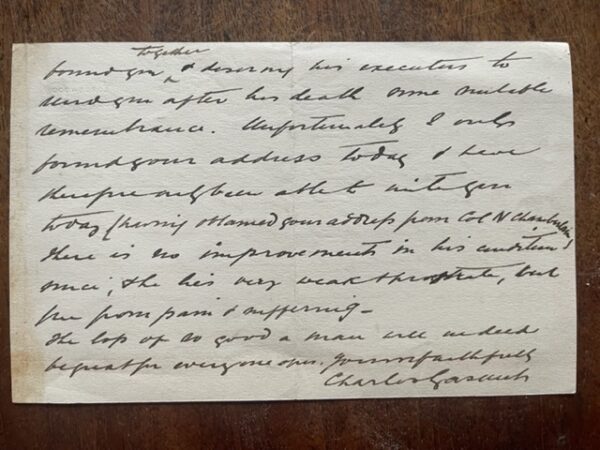 together
bound you & desiring his executors to
send you after his death some suitable
remembrance. Unfortunately I only
found your address today & have
therefore only been able to write you
today (having obtained your address from Col N Chamberlain)
There is no improvements in his condition
since, & he lies very weak & prostrate, but
free from pain & suffering -
The loss of so good a man will indeed
be great for everyone Yours faithfully
Charles